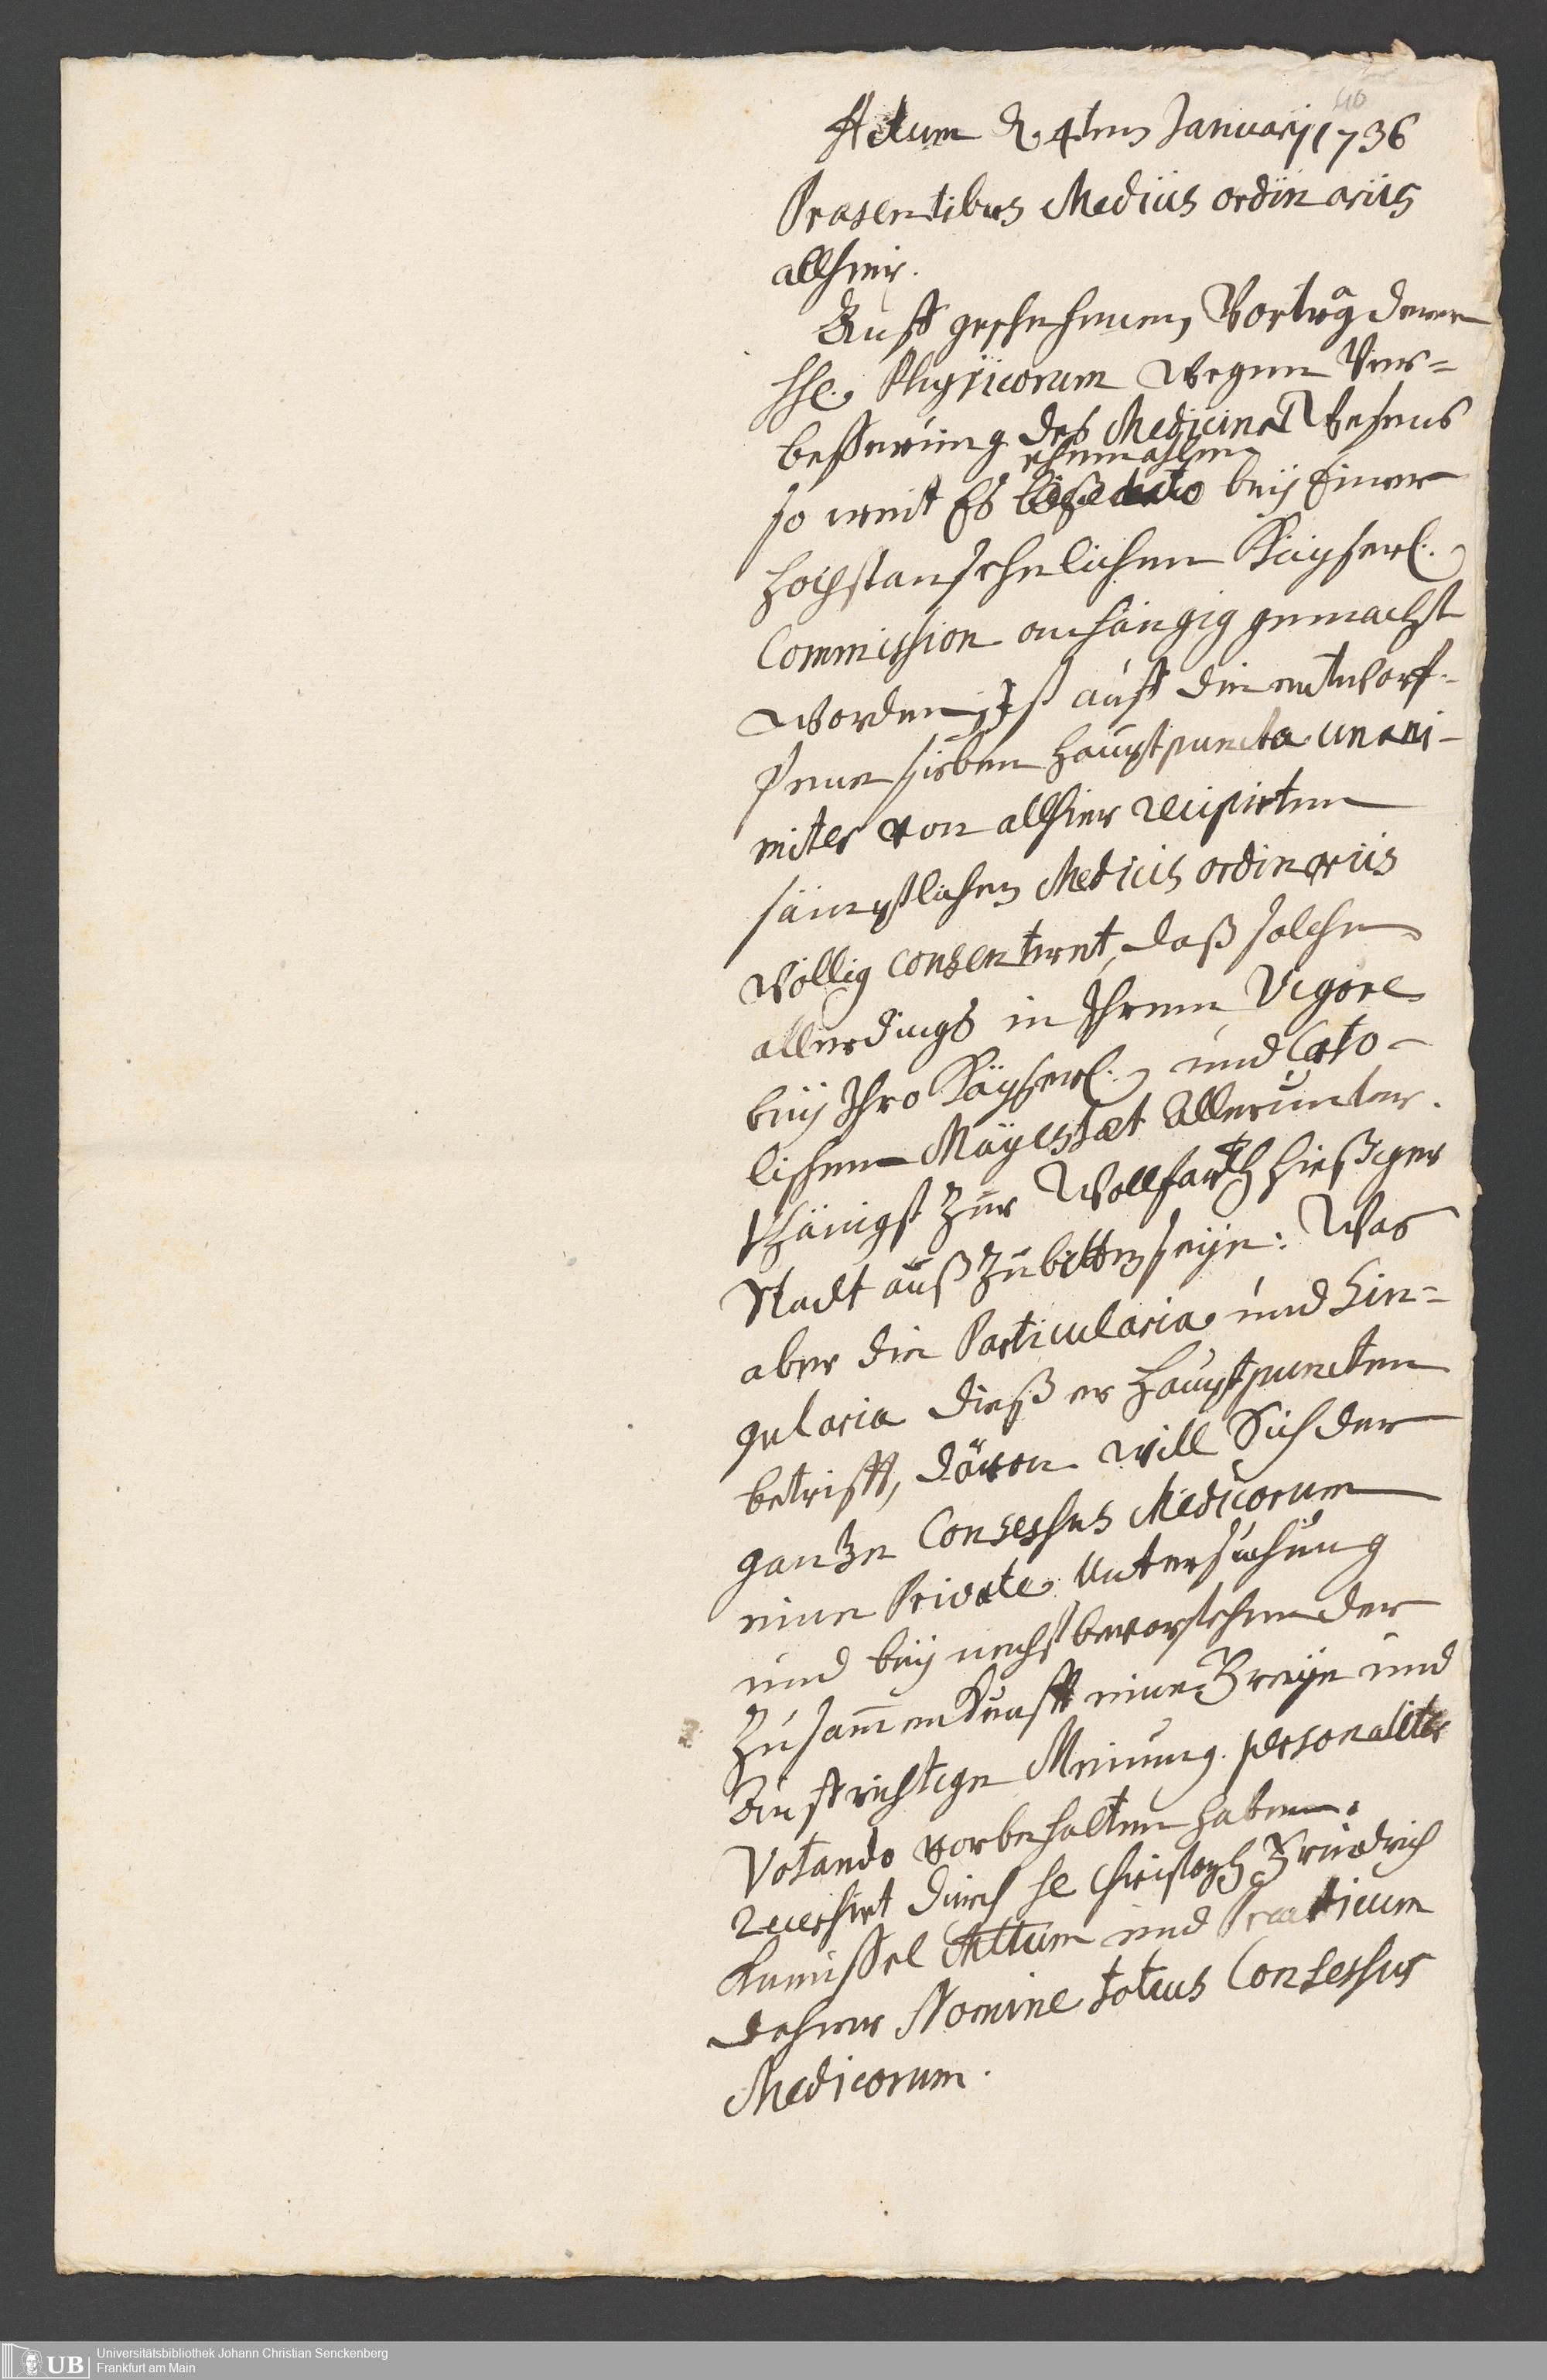 40
Actum d. 4ten Januarij 1736
Præsentibus Mediciis ordinariis
allhier.
Auff geschehenen Vortrag derer
HH. Physicorum wegen Ver=
besserung des Medicinal Wesens
ehemahlen
so weit Es bey Einer
Hochstansehnlichen Kayserl.
Commission anhängig gemacht
worden, ist auff die entworf-
fene sieben Hauptpuncta unani-
miter von allhier recipirten
sämptlichen Medicis ordinariis
völlig consentiret, daß solche
allerdings in Ihrem Vigore
bey Ihro Kayserl. und Cato-
lischen Mayestæt Allerunter-
thänigst zur Wollfarth hießiger
Stadt außzubitten seye: Was
aber die Particularia und Sin=
gularia dießer Hauptpuncten
betrifft, davon will Sich der
gantze Consessus Medicorum
eine Private Untersuchung
und bey nechst bevorstehender
Zusammenkunfft eine Freye und
Auffrichtige Meinung personaliter
Votando vorbehalten haben.
recessirt durch H. Christoph Friedrich
Kneussel Medicum und Practicum
dahier Nomine totius Consessus
Medicorum.
UB Universitätsbibliothek Johann Christian Senckenberg
Frankfurt am Main